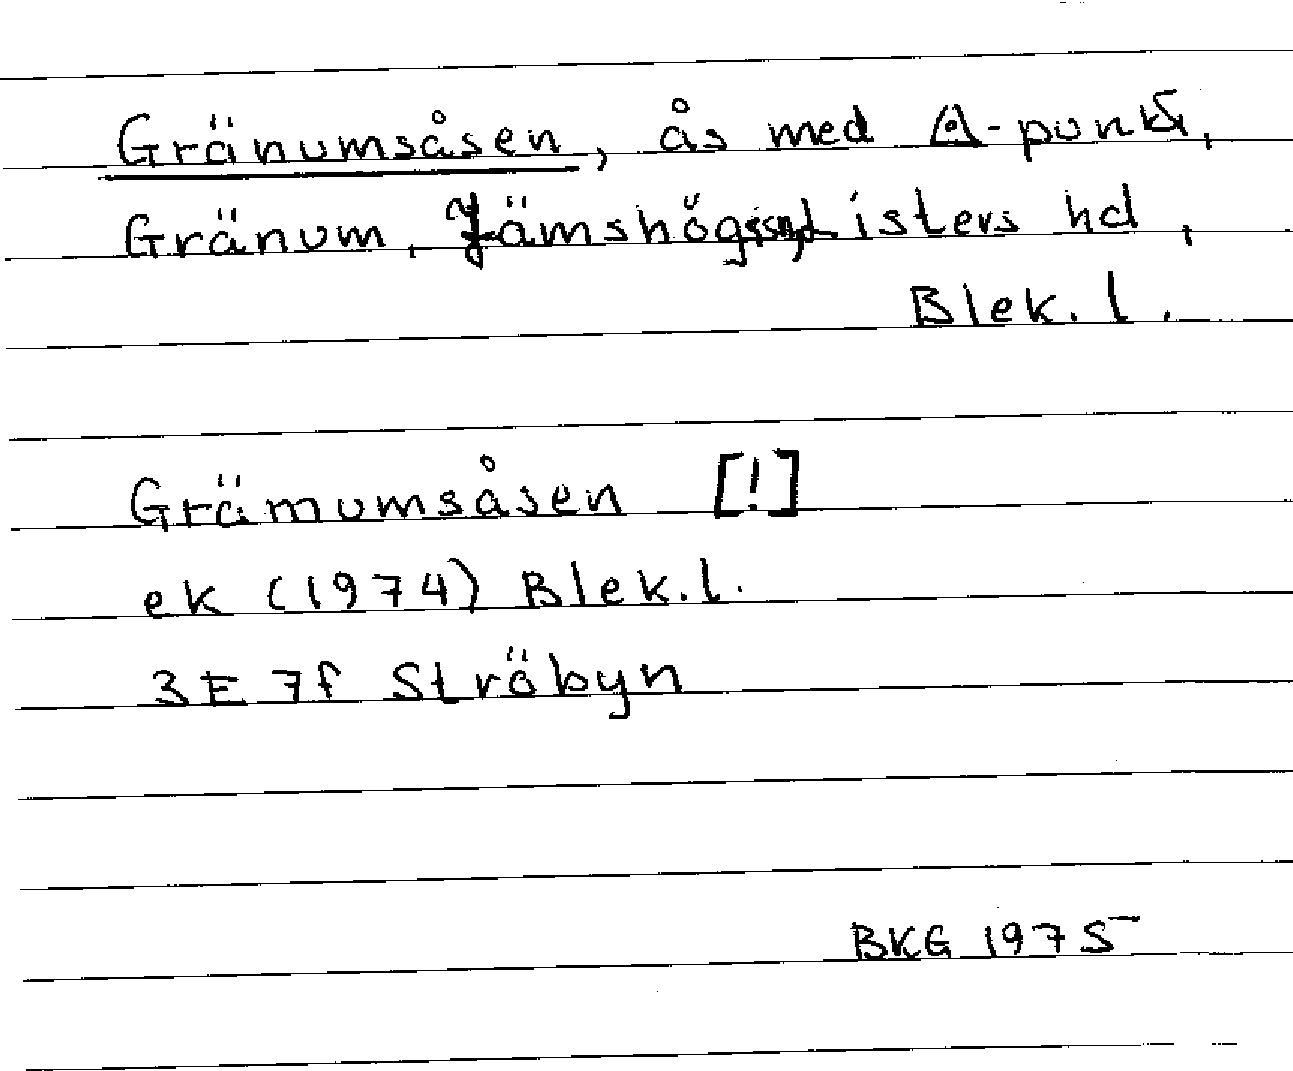 Gränumsåsen, ås med Δ-punkt,
Gränum, Jämshögs sn, Listers hd,
Blek. l.
Grämumsåsen [!]
ek (1974) Blek. l.
3E 7f Ströbyn
BKG 1975